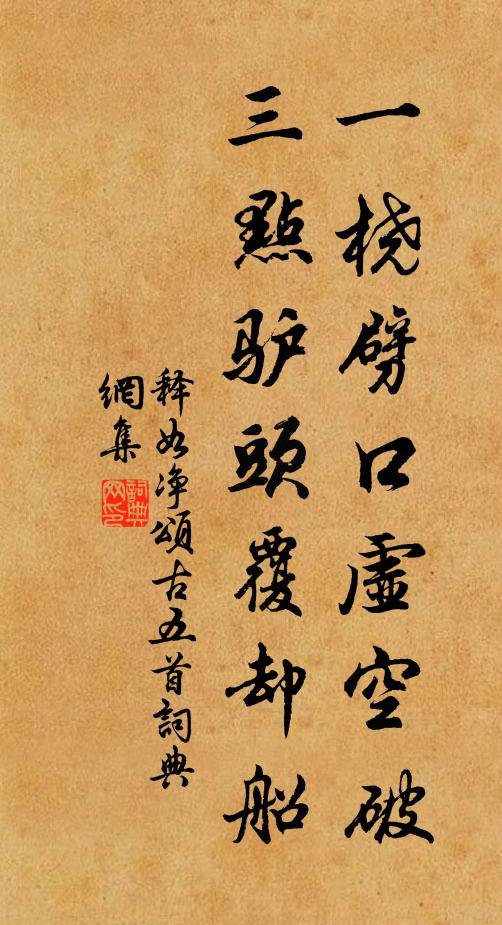 一桡劈口虚空破
三點驴頭覆却船
释如净頌古五首詞典
網集
詞典
网印